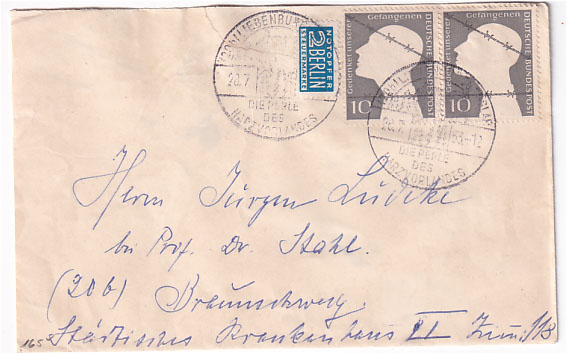 NOTOPFER
2 BERLIN
STEUERMARKE
Gedenket unserer Gefangenen
DEUTSCHE BUNDESPOST
10
Gedenket unserer Gefangenen
DEUTSCHE BUNDESPOST
10
20.7
DIE PERLE
DES
HARZVORLANDES
53-12
DIE PERLE
DES
HARZVORLANDES
Herrn Jürgen Lüdtke
bei Prof. Dr. Stahl.
(20b) Braunschweig.
165
Städtisches Krankenhaus II Zim. 113